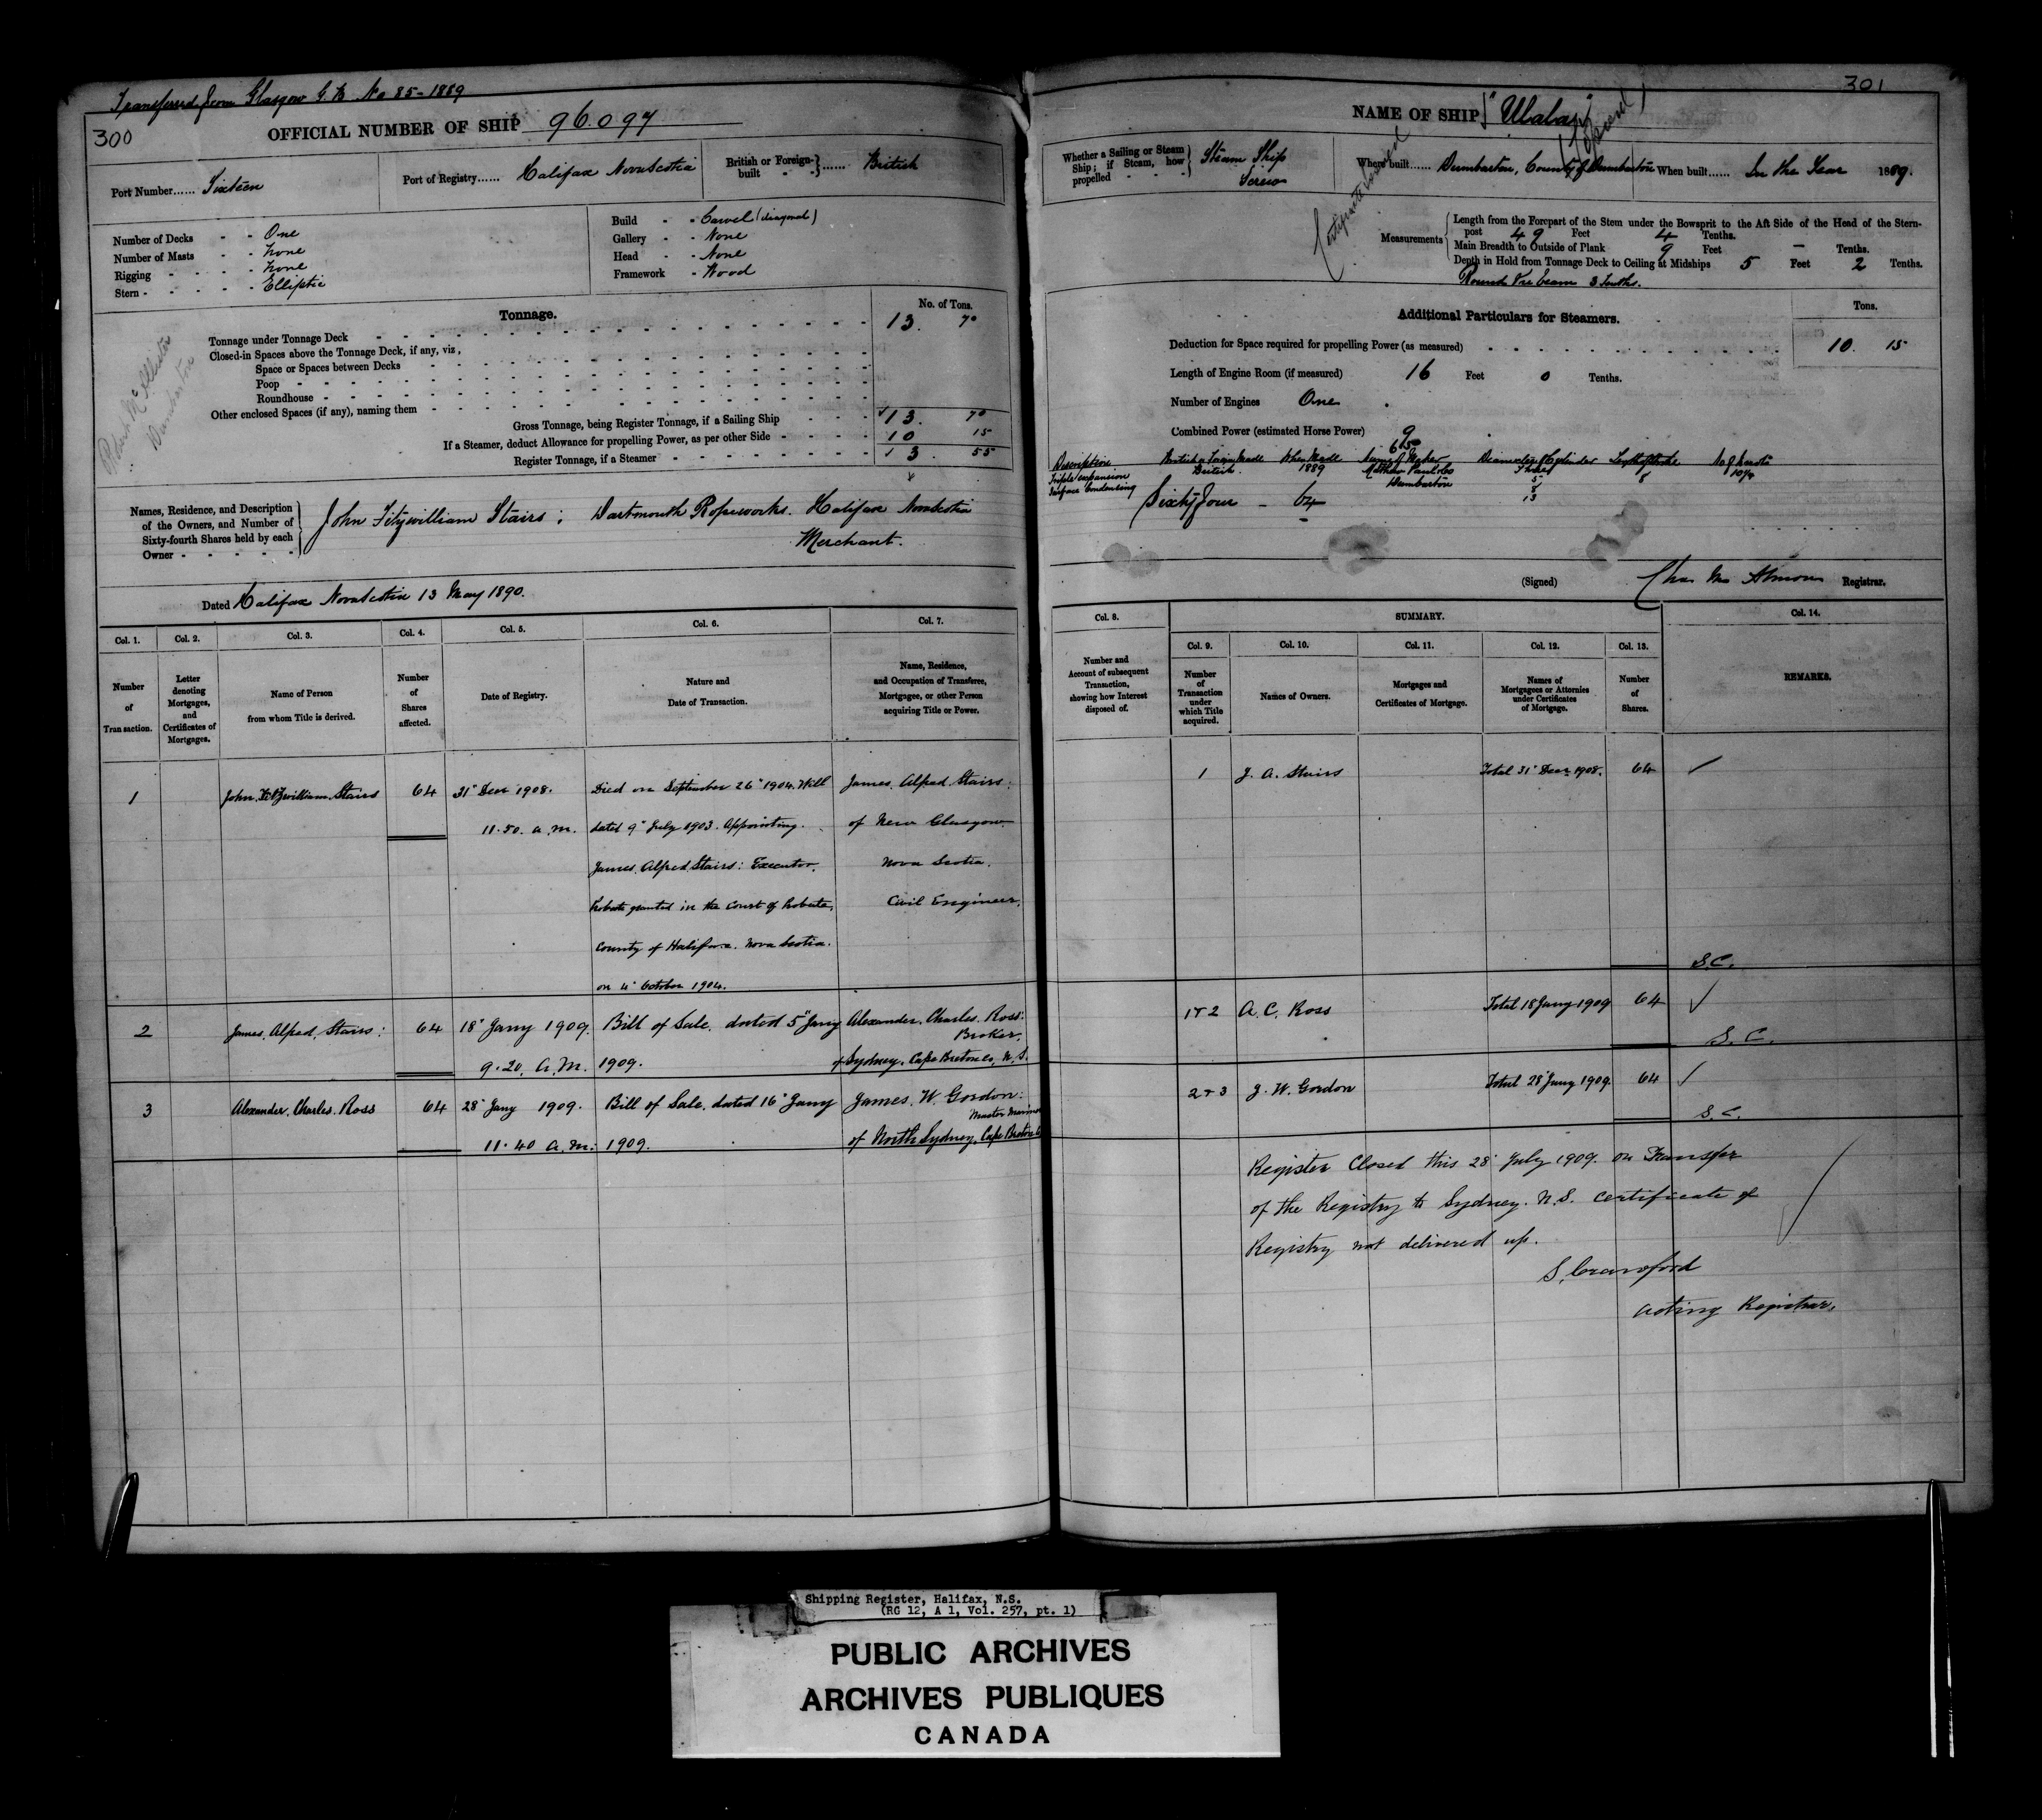 Transferred from Glasgow G.B. No 85-1889
300
OFFICIAL NUMBER OF SHIP 96.097
Port Number...... Sixteen
Port of Registry...... Halifax Nova Scotia
British or Foreign-built - - } ...... British
Number of Decks - - One
Number of Masts - - None
Rigging - - - - None
Stern - - - - - Elliptic
Build - - Carvel (diagonal)
Gallery - - None
Head - - None
Framework - Wood
Tonnage.
No. of Tons.
Tonnage under Tonnage Deck 13. 70
Closed-in Spaces above the Tonnage Deck, if any, viz,
Space or Spaces between Decks
Poop
Roundhouse
Other enclosed Spaces (if any), naming them
Gross Tonnage, being Register Tonnage, if a Sailing Ship 13. 70
If a Steamer, deduct Allowance for propelling Power, as per other Side 10 15
Register Tonnage, if a Steamer 3. 55
Robert McAllister
Dumbarton
Names, Residence, and Description
of the Owners, and Number of
Sixty-fourth Shares held by each
Owner
John Fitzwilliam Stairs; Dartmouth Ropeworks. Halifax Nova Scotia
Merchant.
Dated Halifax Nova Scotia 13 May 1890.
Col. 1. Col. 2. Col. 3. Col. 4. Col. 5. Col. 6. Col. 7.
Number of Transaction.
Letter denoting Mortgages, and Certificates of Mortgages.
Name of Person from whom Title is derived.
Number of Shares affected.
Date of Registry.
Nature and Date of Transaction.
Name, Residence, and Occupation of Transferee, Mortgagee, or other Person acquiring Title or Power.
1 John Fitzwilliam Stairs 64 31" Decr 1908. Died on September 26" 1904. Will James Alfred Stairs:
11.50. a.m. dated 9" July 1903. Appointing of New Glasgow
James Alfred Stairs: Executor. Nova Scotia.
Probate granted in the Court of Probate, Civil Engineer.
County of Halifax. Nova Scotia.
on 4" October 1904.
2 James Alfred Stairs: 64 18" Jany 1909. Bill of Sale. dated 5" Jany Alexander Charles Ross:
Broker.
9.20. a.m. 1909. of Sydney. Cape Breton Co, N.S.
3 Alexander Charles Ross 64 28" Jany 1909. Bill of Sale. dated 16" Jany James. W. Gordon:
Master Mariner
11.40 a.m. 1909. of North Sydney, Cape Breton Co
301
NAME OF SHIP "Ulalai"
Certificate
Whether a Sailing or Steam Ship; if Steam, how propelled - - - - } Steam Ship
Screw
Where built...... Dumbarton, County of Dumbarton
When built...... In the Year 1889.
Measurements
Length from the Forepart of the Stem under the Bowsprit to the Aft Side of the Head of the Stern-
post 49 Feet 4 Tenths.
Main Breadth to Outside of Plank 9 Feet — Tenths.
Depth in Hold from Tonnage Deck to Ceiling at Midships 5 Feet 2 Tenths.
Round of beam 3 Tenths.
Additional Particulars for Steamers.
Tons.
Deduction for Space required for propelling Power (as measured) 10. 15
Length of Engine Room (if measured) 16 Feet 0 Tenths.
Number of Engines One
Combined Power (estimated Horse Power) 9
Description British or Foreign Made When Made Name of Maker Diameter of Cylinder Length of Stroke No of Knots
Triple expansion British. 1889 Matthew Paul & Co Three 8 10¼
Surface Condensing Dumbarton 5
8
13
Sixty Four - 64
(Signed) Chas. Mc Almon Registrar.
Col. 8. SUMMARY. Col. 14.
Col. 9. Col. 10. Col. 11. Col. 12. Col. 13.
Number and Account of subsequent Transaction, showing how Interest disposed of.
Number of Transaction under which Title acquired.
Names of Owners.
Mortgages and Certificates of Mortgage.
Names of Mortgagees or Attornies under Certificates of Mortgage.
Number of Shares.
REMARKS.
1 J. A. Stairs Total 31" Decr 1908. 64
S.C.
1+2 A. C. Ross Total 18 Jany 1909 64
S.C.
2+3 J. W. Gordon Total 28" Jany 1909. 64
S.C.
Register Closed this 28" July 1909. on Transfer
of the Registry to Sydney. N.S. Certificate of
Registry not delivered up.
S. Crawford
Acting Registrar.
Shipping Register, Halifax, N.S.
(RG 12, A 1, Vol. 257, pt. 1)
PUBLIC ARCHIVES
ARCHIVES PUBLIQUES
CANADA